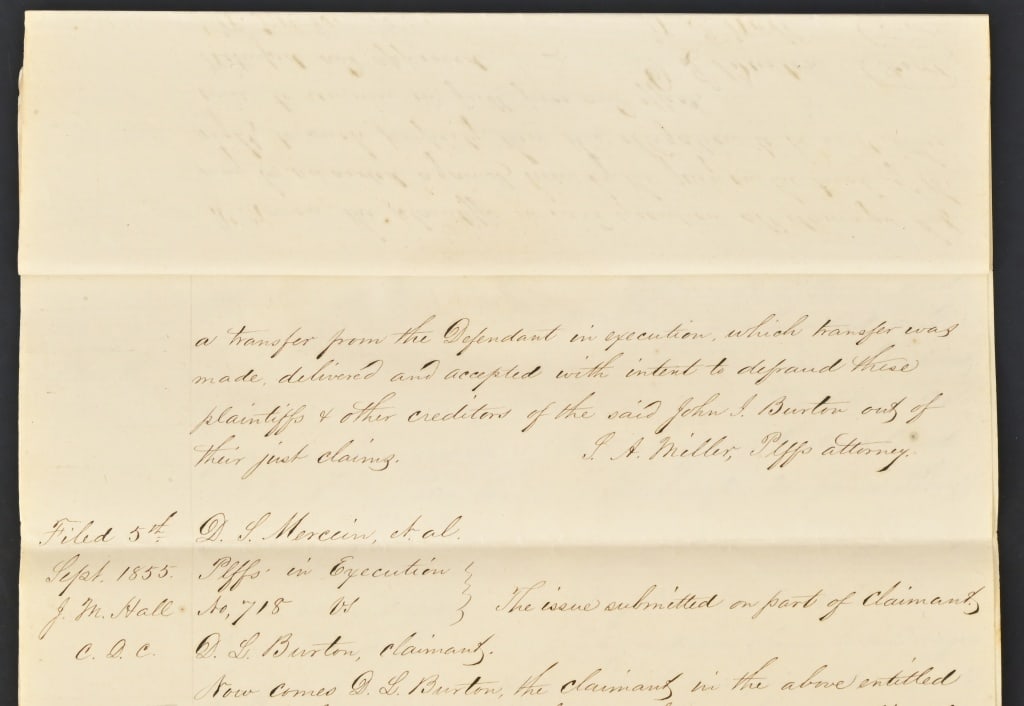 a transfer from the Defendant in execution, which transfer was
made, delivered and accepted with intent to defraud these
plaintiffs & other creditors of the said John I. Burton out of
their just claims.
I. A. Miller, Plffs attorney.
Filed 5th D. S. Mercein, et al.
Sept. 1855. Plffs in Execution
J. M. Hall No, 718 vs The issue submitted on part of claimant.
C. D. C. D. L. Burton, claimant.
Now comes D. L. Burton, the claimant in the above entitled